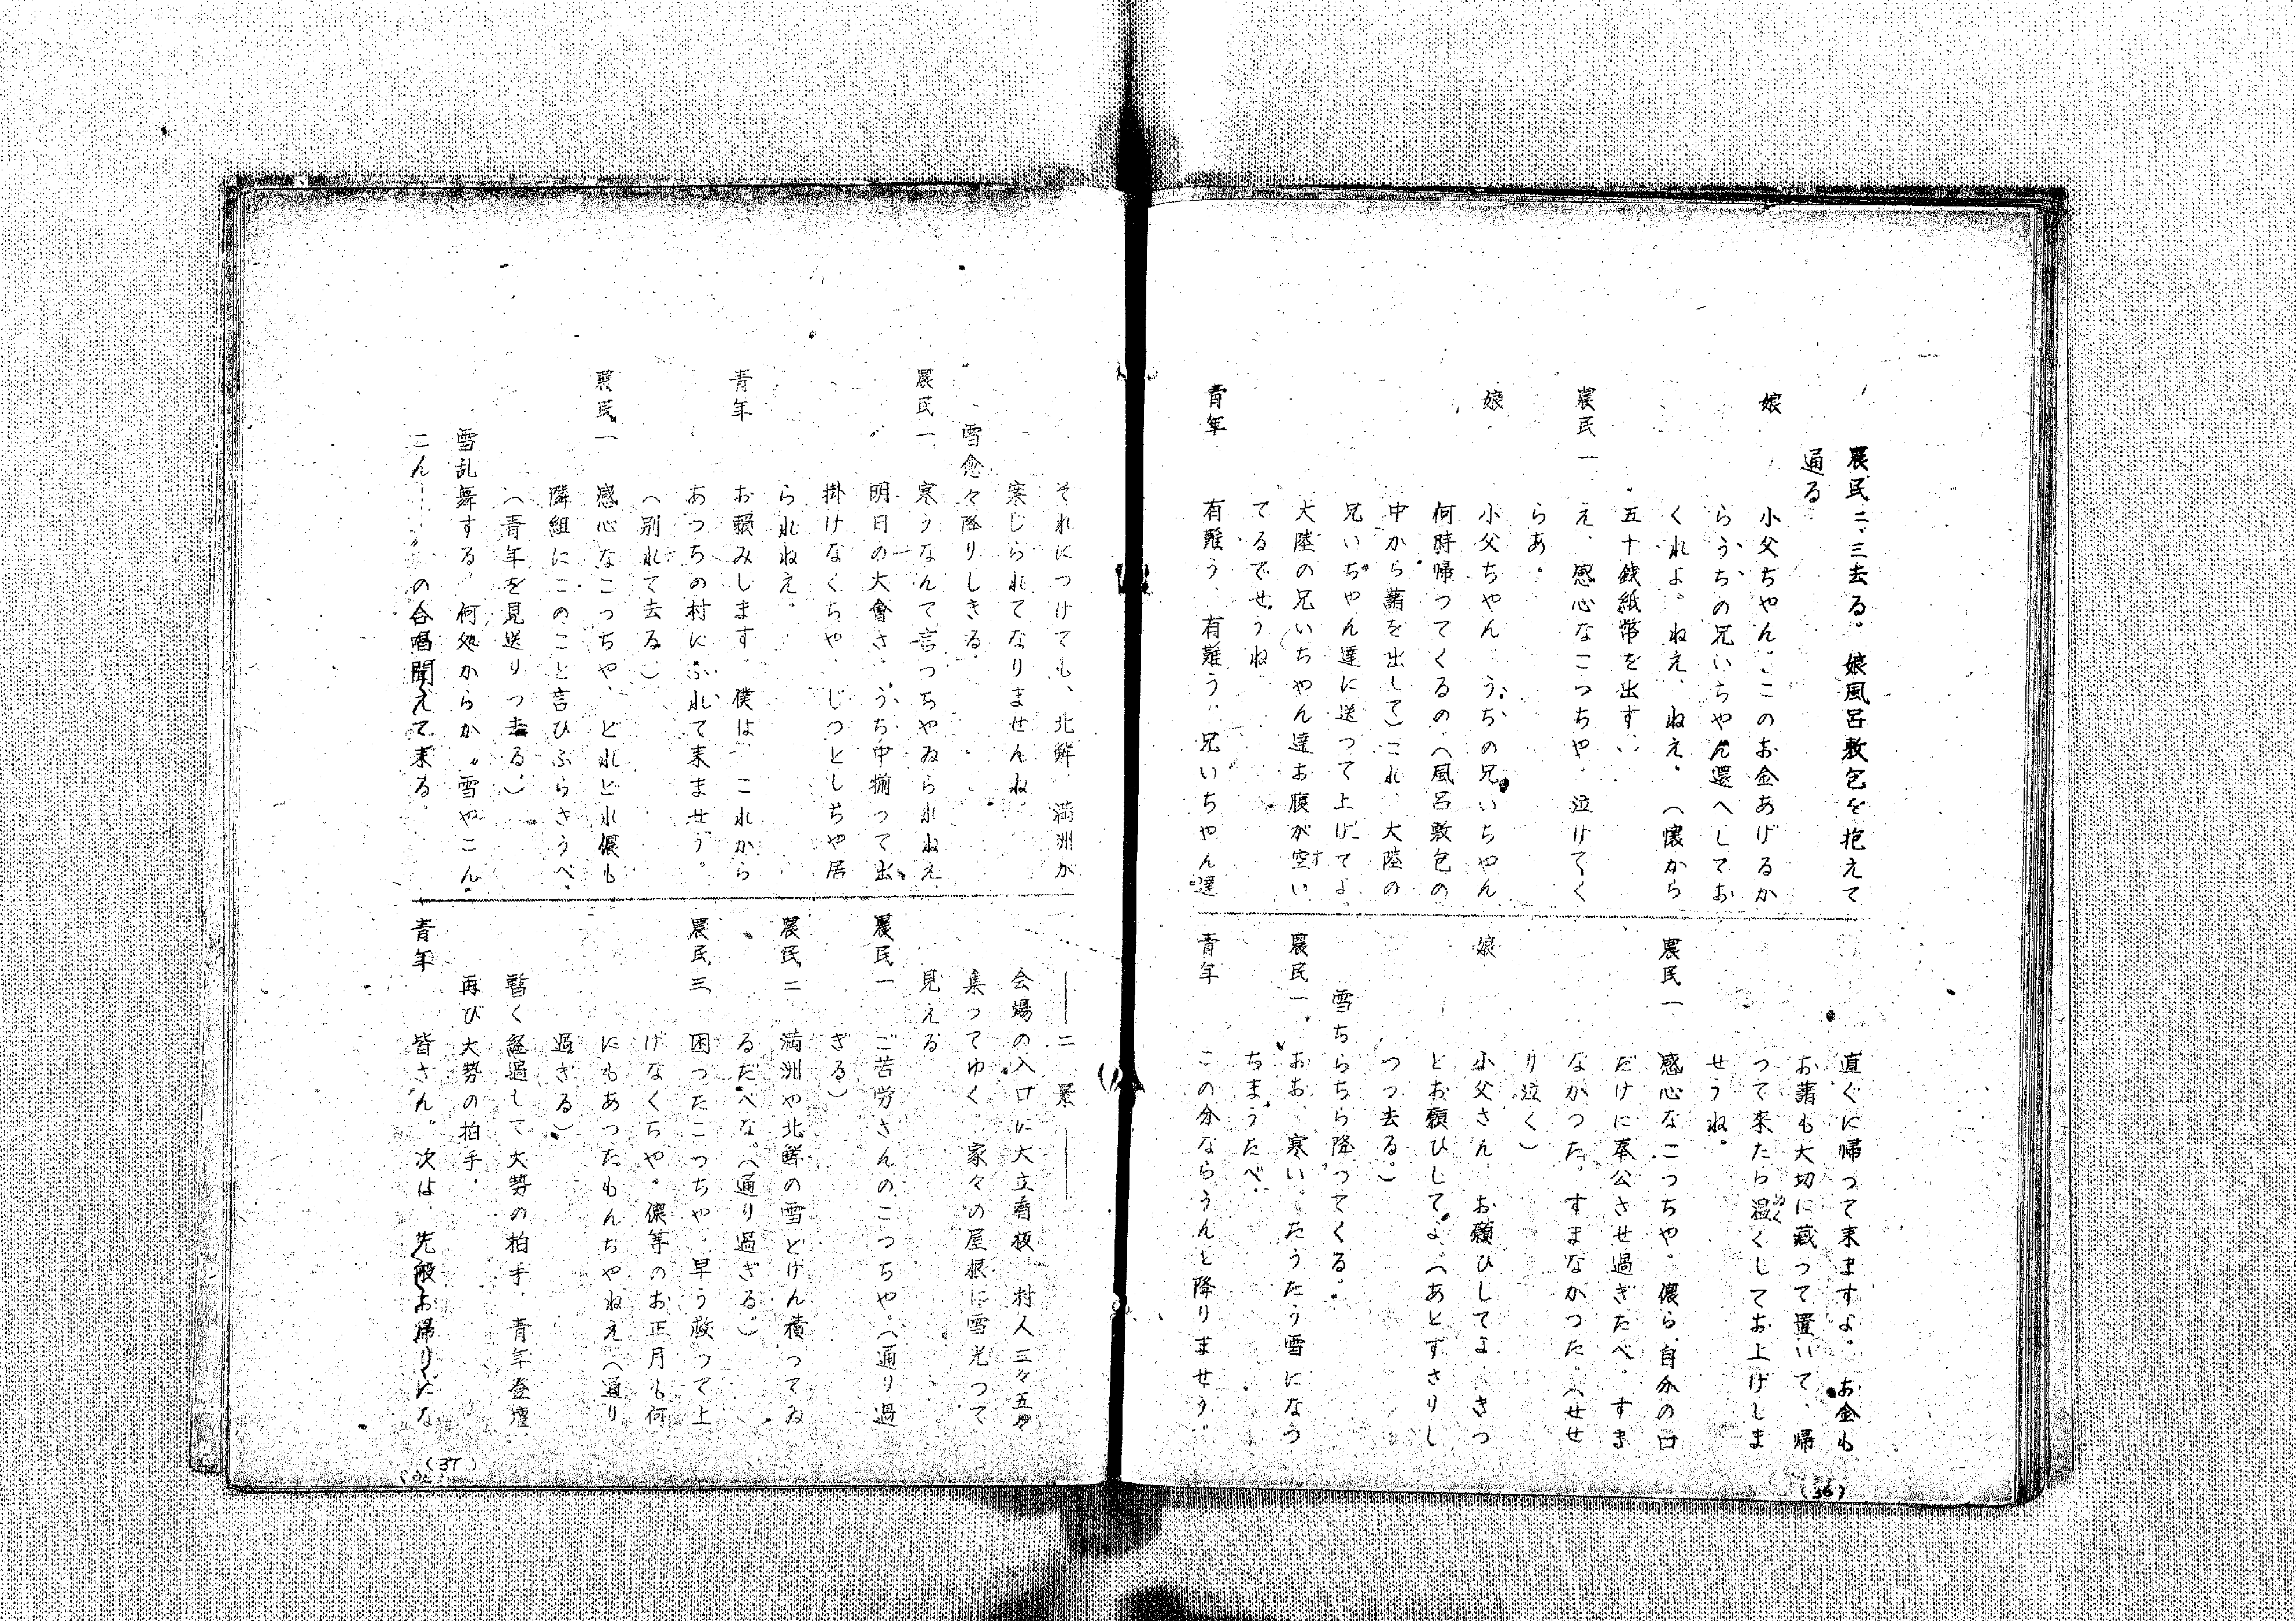 農民二、三去る。娘風呂敷包を抱えて
通る
娘 小父ちやん。このお金あげるか
らうちの兄いちやん還へしてお
くれよ。ねえ、ねえ。(懐から
五十銭紙幣を出す)
農民一 え、感心なこつちや。泣けてく
らあ。
娘 小父ちやん、うちの兄いちやん
何時帰つてくるの(風呂敷包の
中から藷を出して)これ、大陸の
兄いちやん達に送つて上げてよ。
大陸の兄いちやん達お腹が空い
てるでせうね
青年 有難う、有難う、兄いちやん達
直ぐに帰つて来ますよ。お金も
お藷も大切に蔵つて置いて、帰
つて来たら温くしてお上げしま
せうね。
農民一 感心なこつちや。儂ら、自分の口
だけに奉公させ過ぎたべ。すま
なかつた。すまなかつた。(せせ
り泣く)
娘 小父さん、お願ひしてよ、きつ
とお願ひしてよ、(あとずさりし
つつ去る。)
雪ちらちら降つてくる。
農民一 おお、寒い。たうたう雪になう
ちまうたべ。
青年 この分ならうんと降りませう。
(36)
それにつけても、北鮮、満洲か
案じられてなりませんね。
雪愈々降りしきる。
農民一 寒うなんて言つちやゐられねえ
明日の大會さ、うち中揃つて出
掛けなくちや、じつとしちや居
られねえ。
青年 お頼みします。僕は、これから
あつちの村にふれて来ませう。
(別れて去る)
農民一 感心なこつちや、どれどれ儂も
隣組にこのこと言ひふらさうべ。
(青年を見送りつ去る。)
雪乱舞する。何処からか〝雪やこん
こん……〟の合唱聞えて来る。
――二景――
会場の入口に大立看板 村人三々五々
集つてゆく、家々の屋根に雪光つて
見える
農民一 ご苦労さんのこつちや。(通り過
ぎる)
農民二 満洲や北鮮の雪どけん積つてゐ
るだべな。(通り過ぎる。)
農民三 困つたこつちや。早う救つて上
げなくちや。儂等のお正月も何
にもあつたもんぢやねえ(通り
過ぎる)
暫く経過して大勢の拍手、青年登壇
再び大勢の拍手。
青年 皆さん。次は、先般お帰りにな
(37)